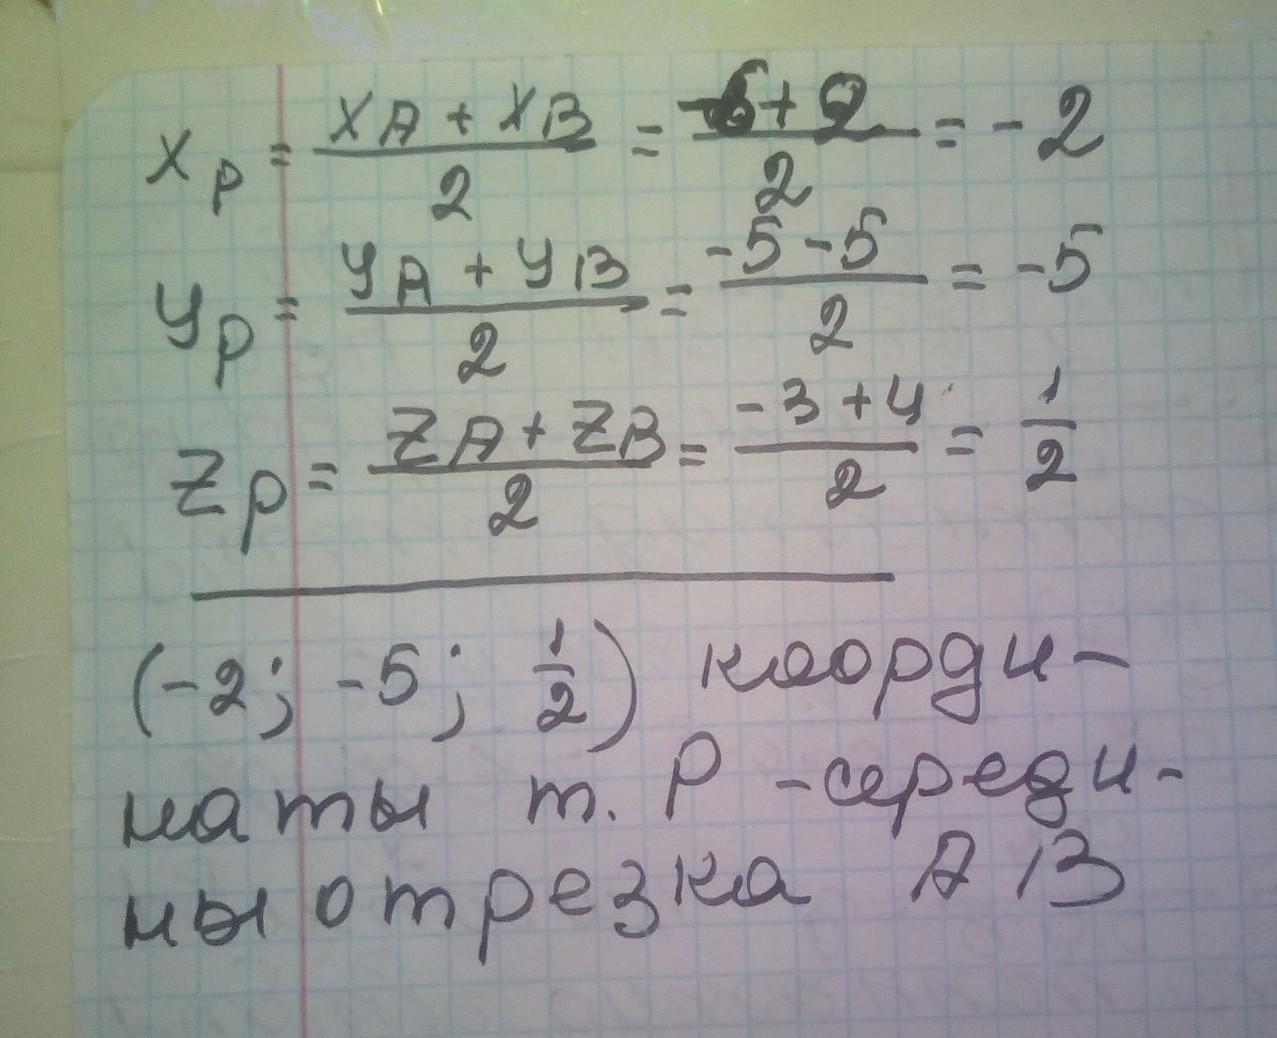 x_P = (x_A + x_B)/2 = (-6+2)/2 = -2
y_P = (y_A + y_B)/2 = (-5-5)/2 = -5
z_P = (z_A + z_B)/2 = (-3+4)/2 = 1/2
(-2; -5; 1/2) коорди-
наты т. P - середи-
ны отрезка AB